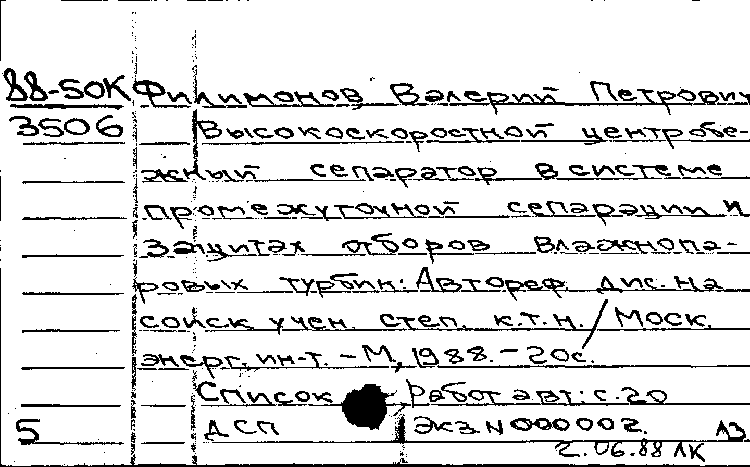 88-50К Филимонов Валерий Петрович
3506 Высокоскоростной центробе-
жный сепаратор в системе
промежуточной сепарации и
защитах отборов влажнопа-
ровых турбин: Автореф. дис. на
соиск учен. степ. к.т.н. / Моск.
энерг. ин-т. - М, 1988. - 20с.
Список работ авт: с. 20
5 ДСП Экз N 000002. АЗ
2.06.88 ЛК